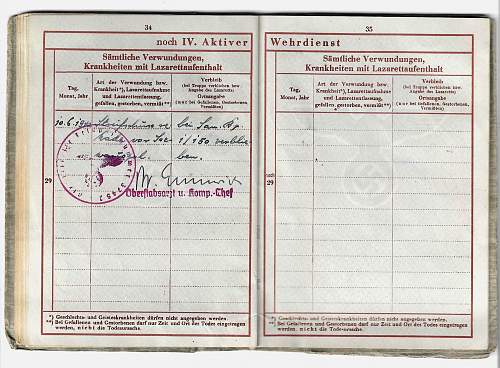 34
noch IV. Aktiver
Sämtliche Verwundungen,
Krankheiten mit Lazarettaufenthalt
Tag,
Monat, Jahr
Art der Verwundung bzw.
Krankheit*), Lazarettaufnahme
und Lazarettentlassung,
gefallen, gestorben, vermißt**)
Verbleib
(bei Truppe verblieben bzw.
Angabe des Lazaretts)
Ortsangabe
(nur bei Gefallenen, Gestorbenen,
Vermißten)
bei San. Kp.
vor 1/160 verblie-
ben.
29
Oberstabsarzt u. Komp.-Chef
*) Geschlechts- und Geisteskrankheiten dürfen nicht angegeben werden.
**) Bei Gefallenen und Gestorbenen darf nur Zeit und Ort des Todes eingetragen
werden, nicht die Todesursache.
35
Wehrdienst
Sämtliche Verwundungen,
Krankheiten mit Lazarettaufenthalt
Tag,
Monat, Jahr
Art der Verwundung bzw.
Krankheit*), Lazarettaufnahme
und Lazarettentlassung,
gefallen, gestorben, vermißt**)
Verbleib
(bei Truppe verblieben bzw.
Angabe des Lazaretts)
Ortsangabe
(nur bei Gefallenen, Gestorbenen,
Vermißten)
noch
29
*) Geschlechts- und Geisteskrankheiten dürfen nicht angegeben werden.
**) Bei Gefallenen und Gestorbenen darf nur Zeit und Ort des Todes eingetragen
werden, nicht die Todesursache.